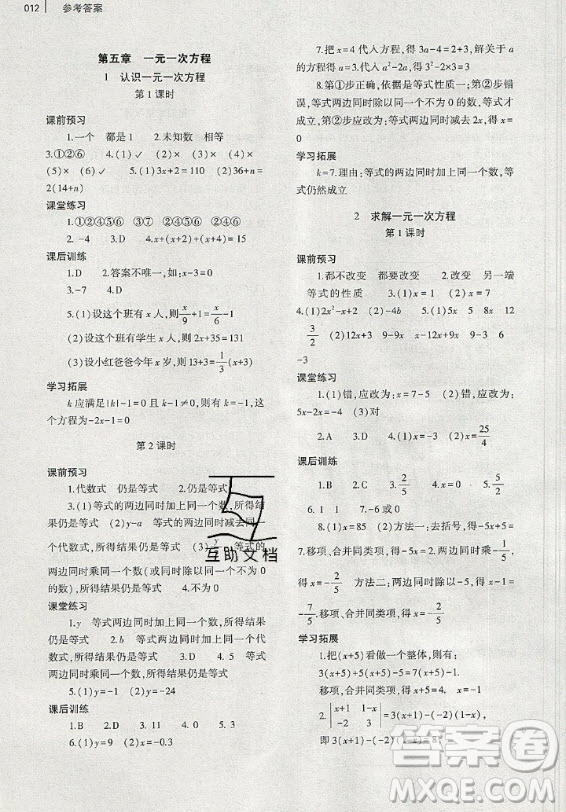 012 参考答案
第五章 一元一次方程
1 认识一元一次方程
第1课时
课前预习
1.一个 都是1 2.未知数 相等
3.①②⑥ 4.(1)✓ (2)× (3)× (4)×
(5)× (6)✓ 5.(1)3x+2=110 (2)
2(14+n)
课堂练习
1.①②④⑤⑥ ②④⑤⑥ ②⑤⑥
2.-4 3.D 4.x+(x+2)+(x+4)=15
课后训练
1.D 2.答案不唯一,如:x-3=0 3.D
3.-7 5.(1)设这个班有x人,则x/9+1=x/6-1
(2)设这个班有学生x人,则2x+35=131
(3)设小红爸爸今年x岁,则13+3=1/3(x+3)
学习拓展
k应满足|k|=1且k-1≠0,则k=-1,这
个方程为-2x-1=0
第2课时
课前预习
1.代数式 仍是等式 2.仍是等式
3.(1)等式的两边同时加上同一个数,所得结
果仍是等式 (2)y-a 等式的两边同时减去同一
个代数式,所得结果仍是等式 等式的
两边同时乘同一个数(或同时除以同一个不为0
的数),所得结果仍是等式 4.不为0
课堂练习
1.y 等式两边同时加上同一个数,所得结
果仍是等式 2.b 等式两边同时加上同一个代
数式,所得结果仍是等式 3.2 等式
两边同时乘同一个数,所得结果仍是等式 4.D
5.(1)y=-1 (2)x=-24
课后训练
1.B 2.D 3.D 4.0 5.④
6.(1)y=9 (2)x=-13
7.把x=4代入方程,得3a-4=2+3,解关于a
的方程得a=3.把a=3代入a²-2a,得3²-2×3=3
8.第①步正确,依据是等式性质一;第②步错
误,等式两边同时除以同一个不为0的数,等式
仍成立,第②步应改为:等式两边同时减去2x,得
x=0.
学习拓展
k=7.理由:等式的两边同时加上同一个数,等
式仍然成立
2 求解一元一次方程
第1课时
课前预习
1.都不改变 都要改变 2.改变 另一端
等式的性质 3.(1)x=2 (2)x=7
4.(1)2x²-x (2)-4b 5.(1)2x 5 8x 12
3/2 (2)12x 9-9x 12x-9x 9-12 3x
-3
课堂练习
1.(1)错,应改为:x=7-5 (2)错,应改为:
5x-2x=-4 (3)对
2.A 3.D 4.(1)x=-3 (2)x=25/4
课后训练
1.B 2.C 3.A 4.D 5.-2/5
6.2 1 1 7.-6或0
8.(1)x=5 (2)方法一:去括号,得-5x+5=
7.移项,合并同类项,得-5x=2.两边同除以-5,
得x=-2/5 方法二:两边同除以-5,得x-1=
-7/5.移项、合并同类项,得x=-2/5
学习拓展
1.把(x+5)看做一个整体,则有:
3(x+5)-5(x+5)+7(x+5)=15+5,
5(x+5)=20.得x+5=4,x=-1
2.|x+1 1-x|
|-2 3|=3(x+1)-(-2)(1-x),
即3(x+1)-(-2)(1-x)=8.
互助文档
答案圈
MXQE.COM